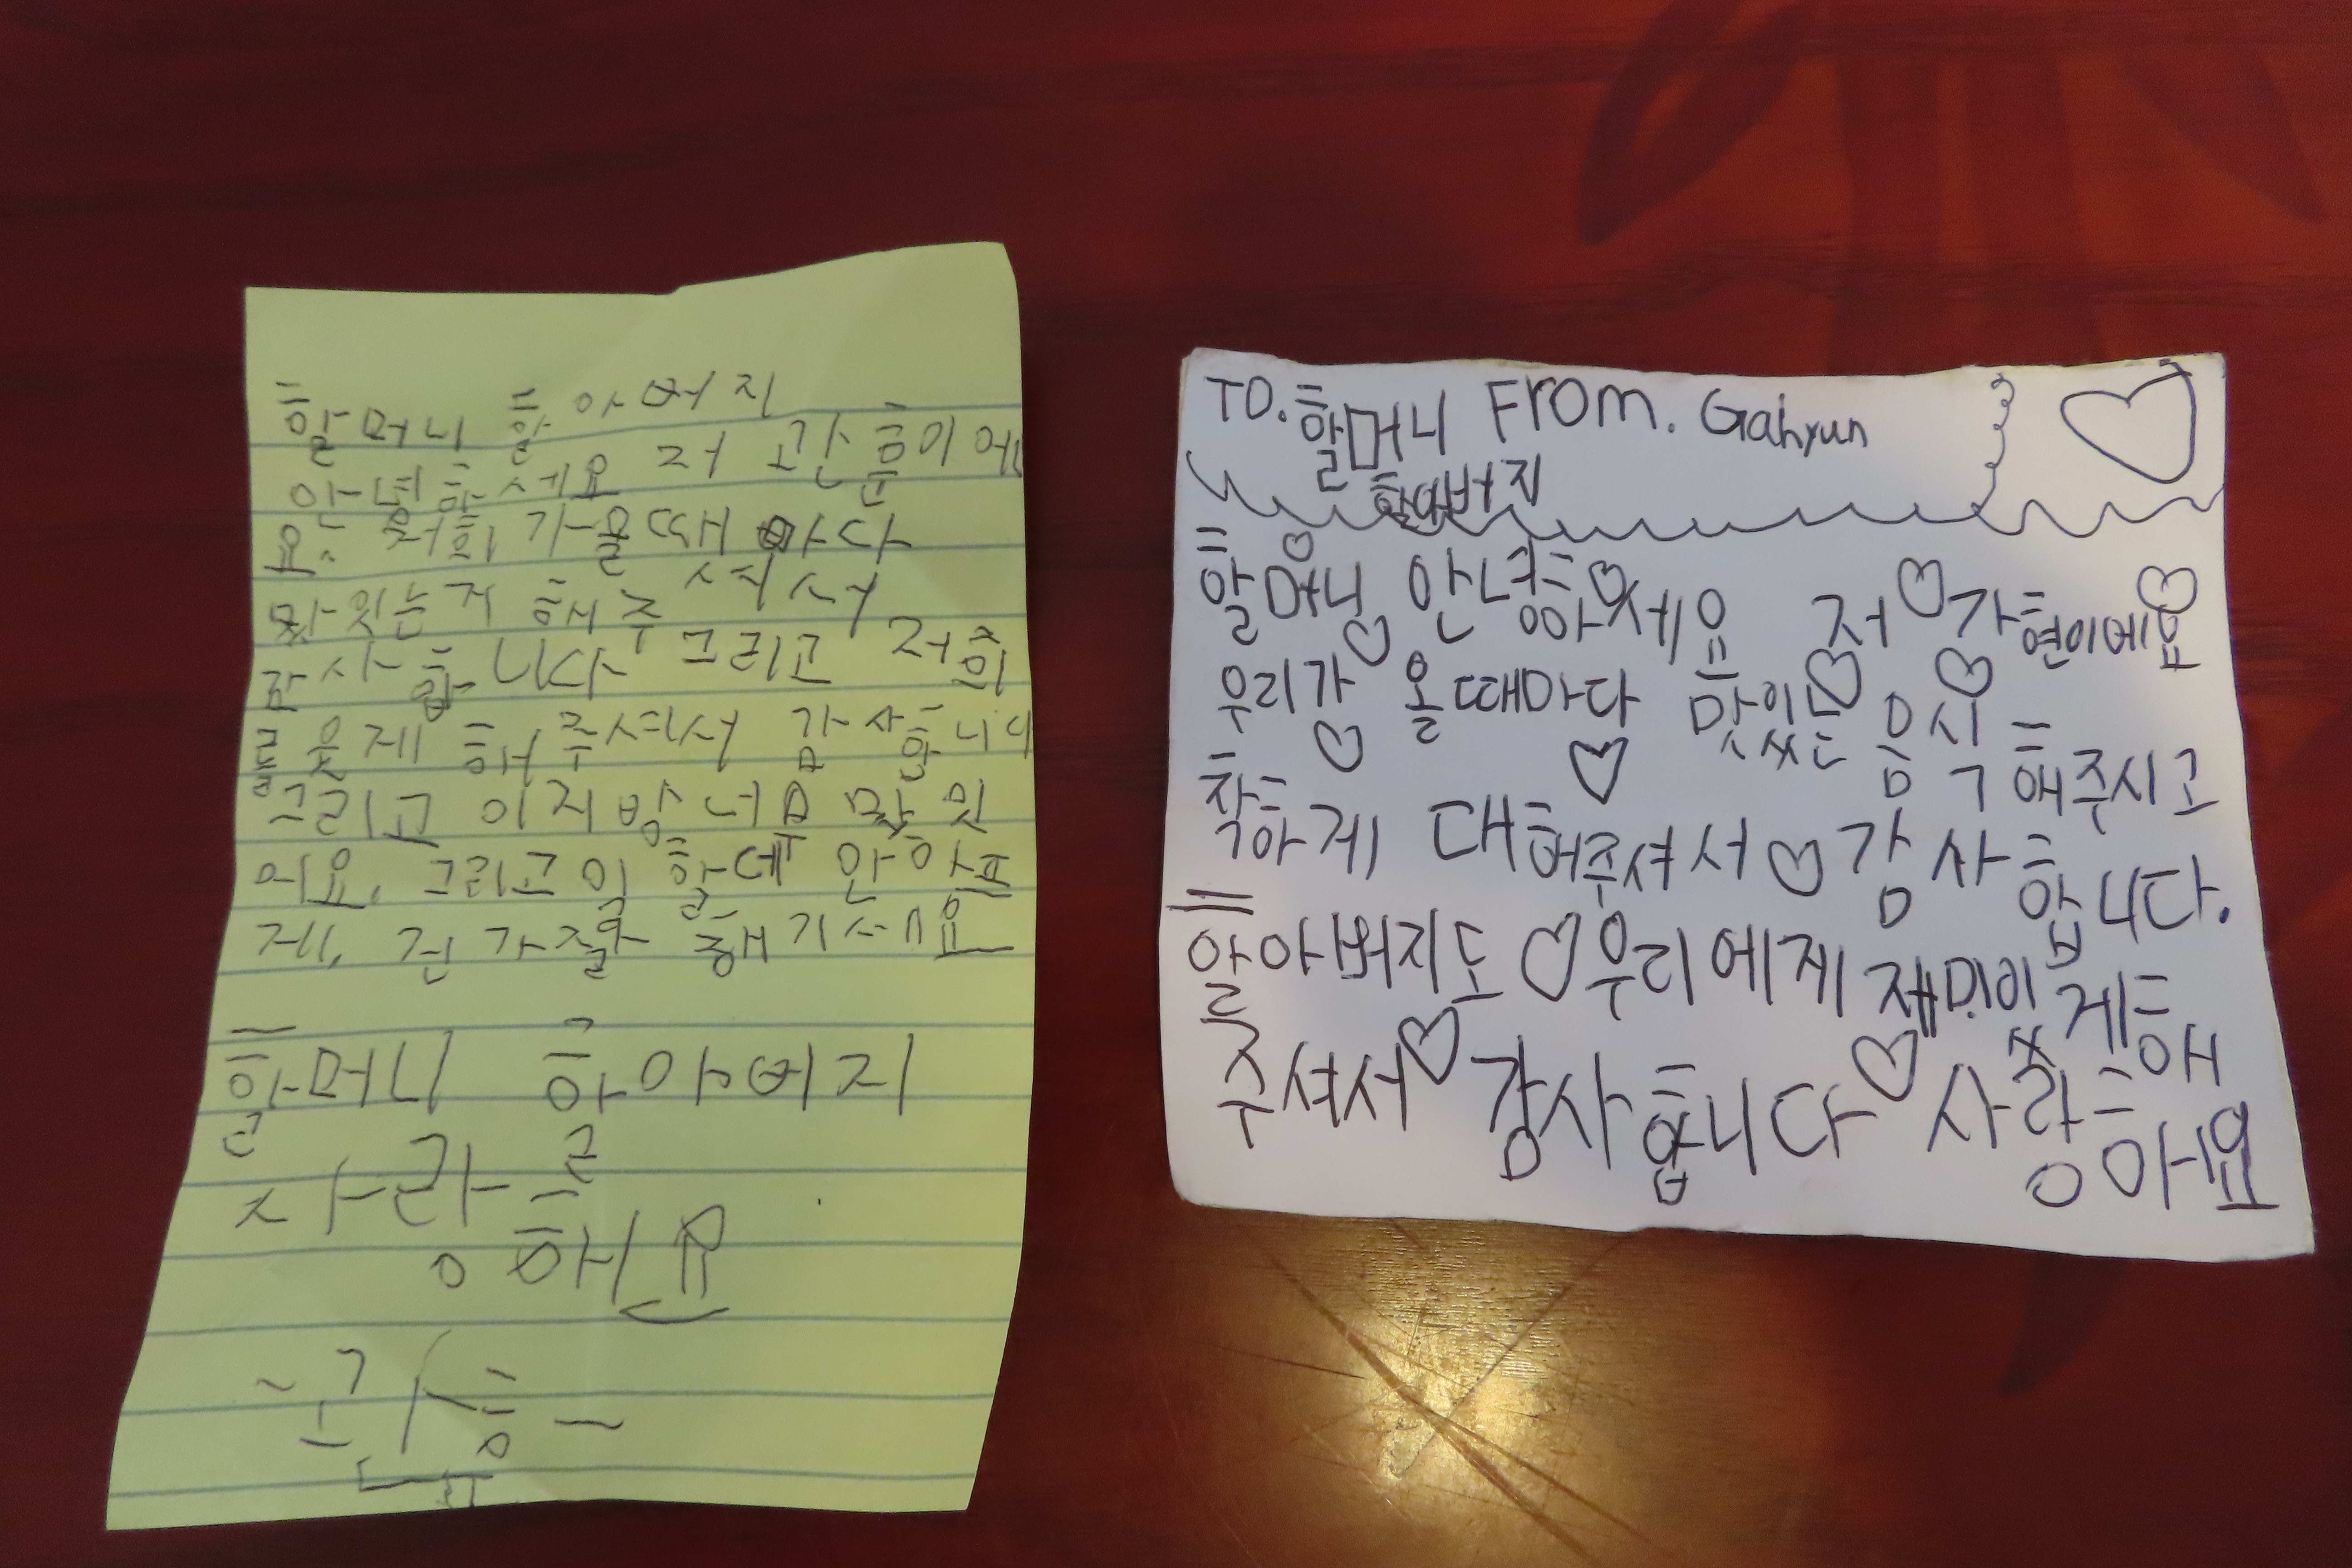 할머니 할아버지
안녕하세요 저 관훈이에
요. 저희가 올때 마다
맛있는거 해주셔서
감사합니다 그리고 저희
를 웃게 해주셔서 감사합니다
그리고 이지방 너무 많
어요. 그리고 일 할데 안아프
게. 건강 잘 챙기세요
할머니 할아버지
사랑
해요
~관훈~
TO. 할머니 From. Gahyun
할아버지
할머니 안녕하세요 저 가현이에요
우리가 올때마다 맛있는 음식 해주시고
착하게 대해주셔서 감사합니다.
할아버지도 우리에게 재미있게 해
주셔서 감사합니다 사랑해요